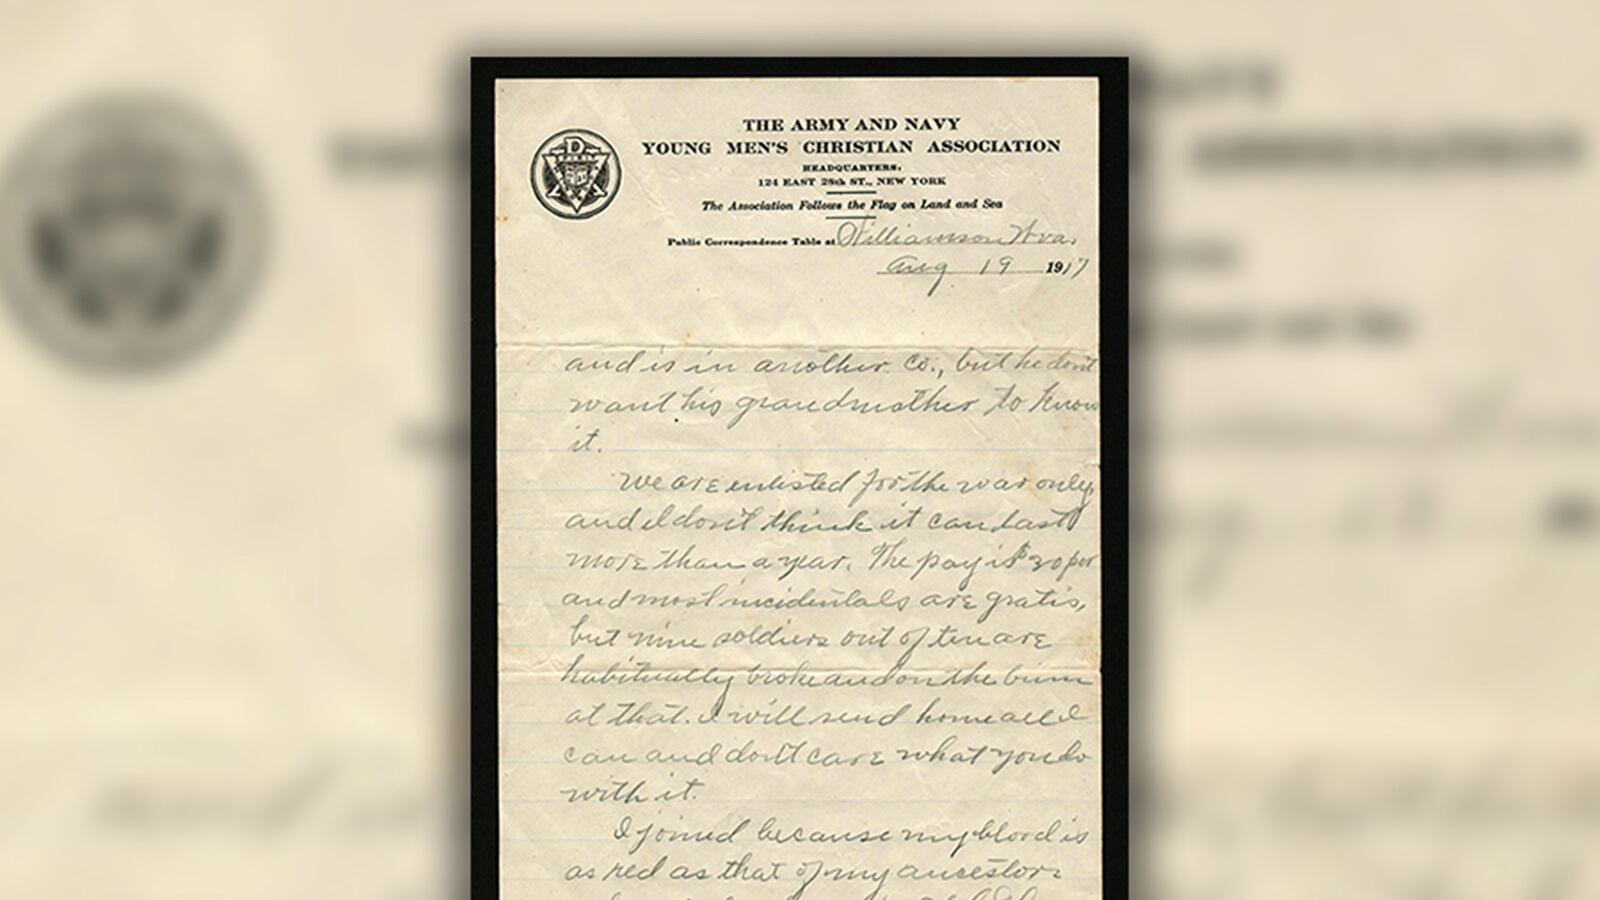 THE ARMY AND NAVY
YOUNG MEN'S CHRISTIAN ASSOCIATION
HEADQUARTERS:
124 EAST 28th ST., NEW YORK
The Association Follows the Flag on Land and Sea
Public Correspondence Table at Williamson W.va.
Aug 19 1917
and is in another Co., but he don't
want his grandmother to know
it.
We are enlisted for the war only,
and I don't think it can last
more than a year. The pay is $30 per
and most incidentals are gratis,
but nine soldiers out of ten are
habitually broke and on the bum
at that. I will send home all I
can and don't care what you do
with it.
I joined because my blood is
as red as that of my ancestors